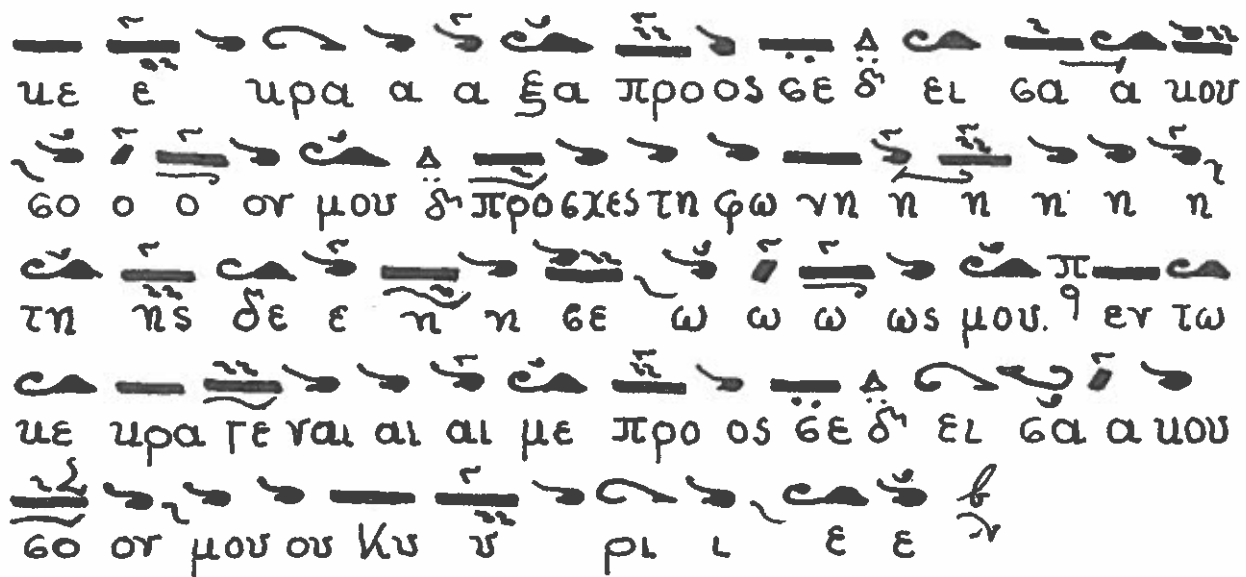 κε ε κρα α α ξα προ ος σε δι ει σα ά κου
σο ο ο ον μου δι προσχες τη φω νη η η η η η
τη ης δε ε η η σε ω ω ω ως μου. π q εν τω
κε κρα γε ναι αι αι με προ ος σε δι ει σα α κου
σο ον μου ου Κυ υ ρι ι ε ε β